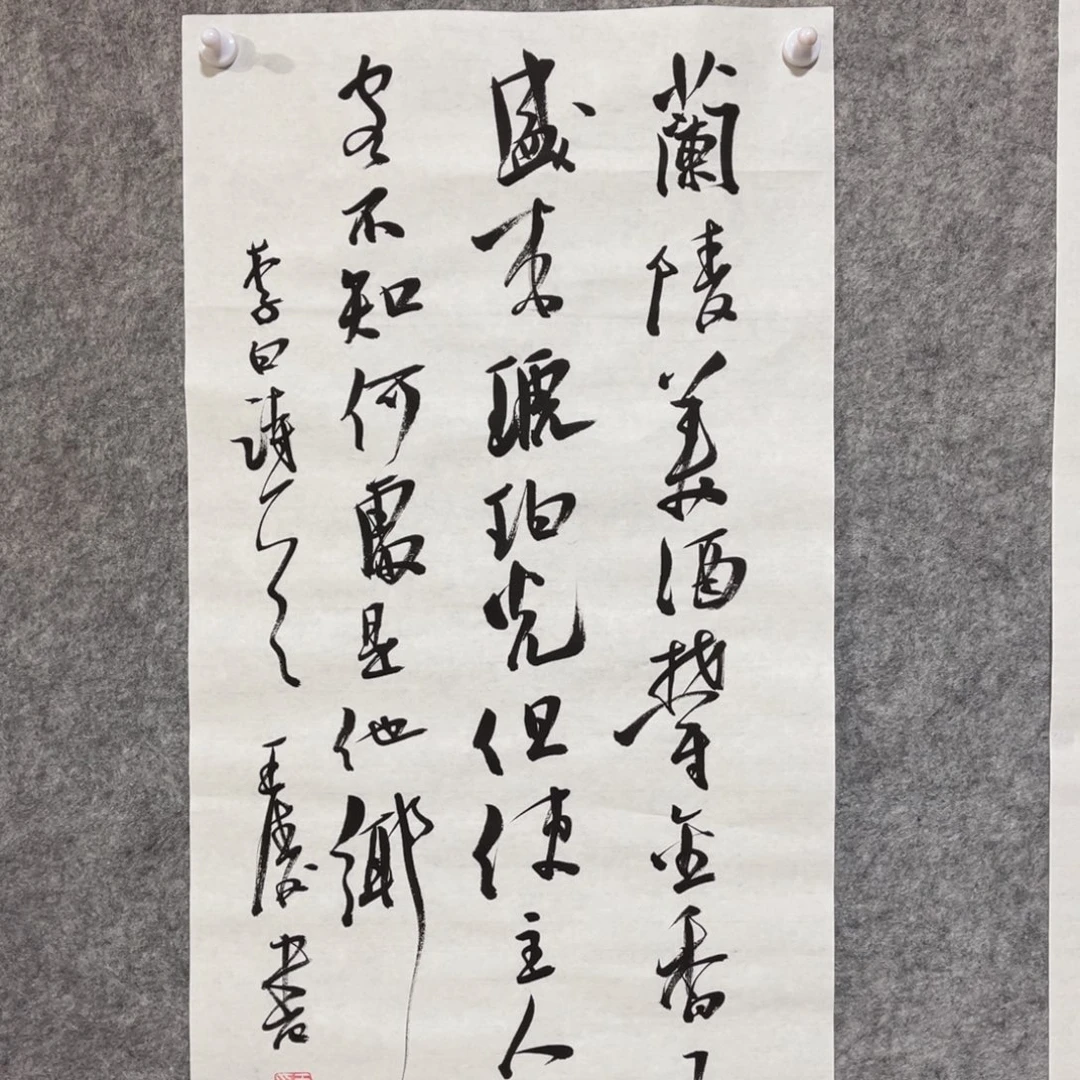 蘭陵美酒鬱金香
盛来琥珀光但使主人
客不知何處是他鄉
李白詩一首 王 書